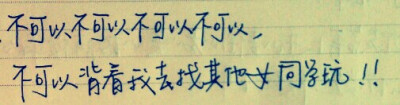 不可以不可以不可以不可以,
不可以背着我去找其他女同学玩!!